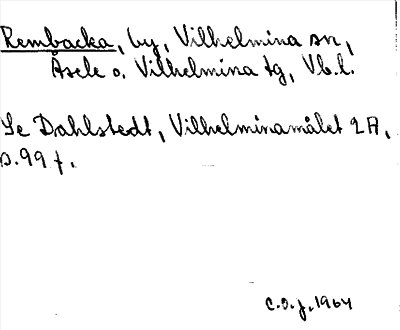 Rembacka, by, Vilhelmina sn,
Åsele o. Vilhelmina tg, Vb.l.
Se Dahlstedt, Vilhelminamålet 2A,
s. 99 f.
C.O.J. 1964